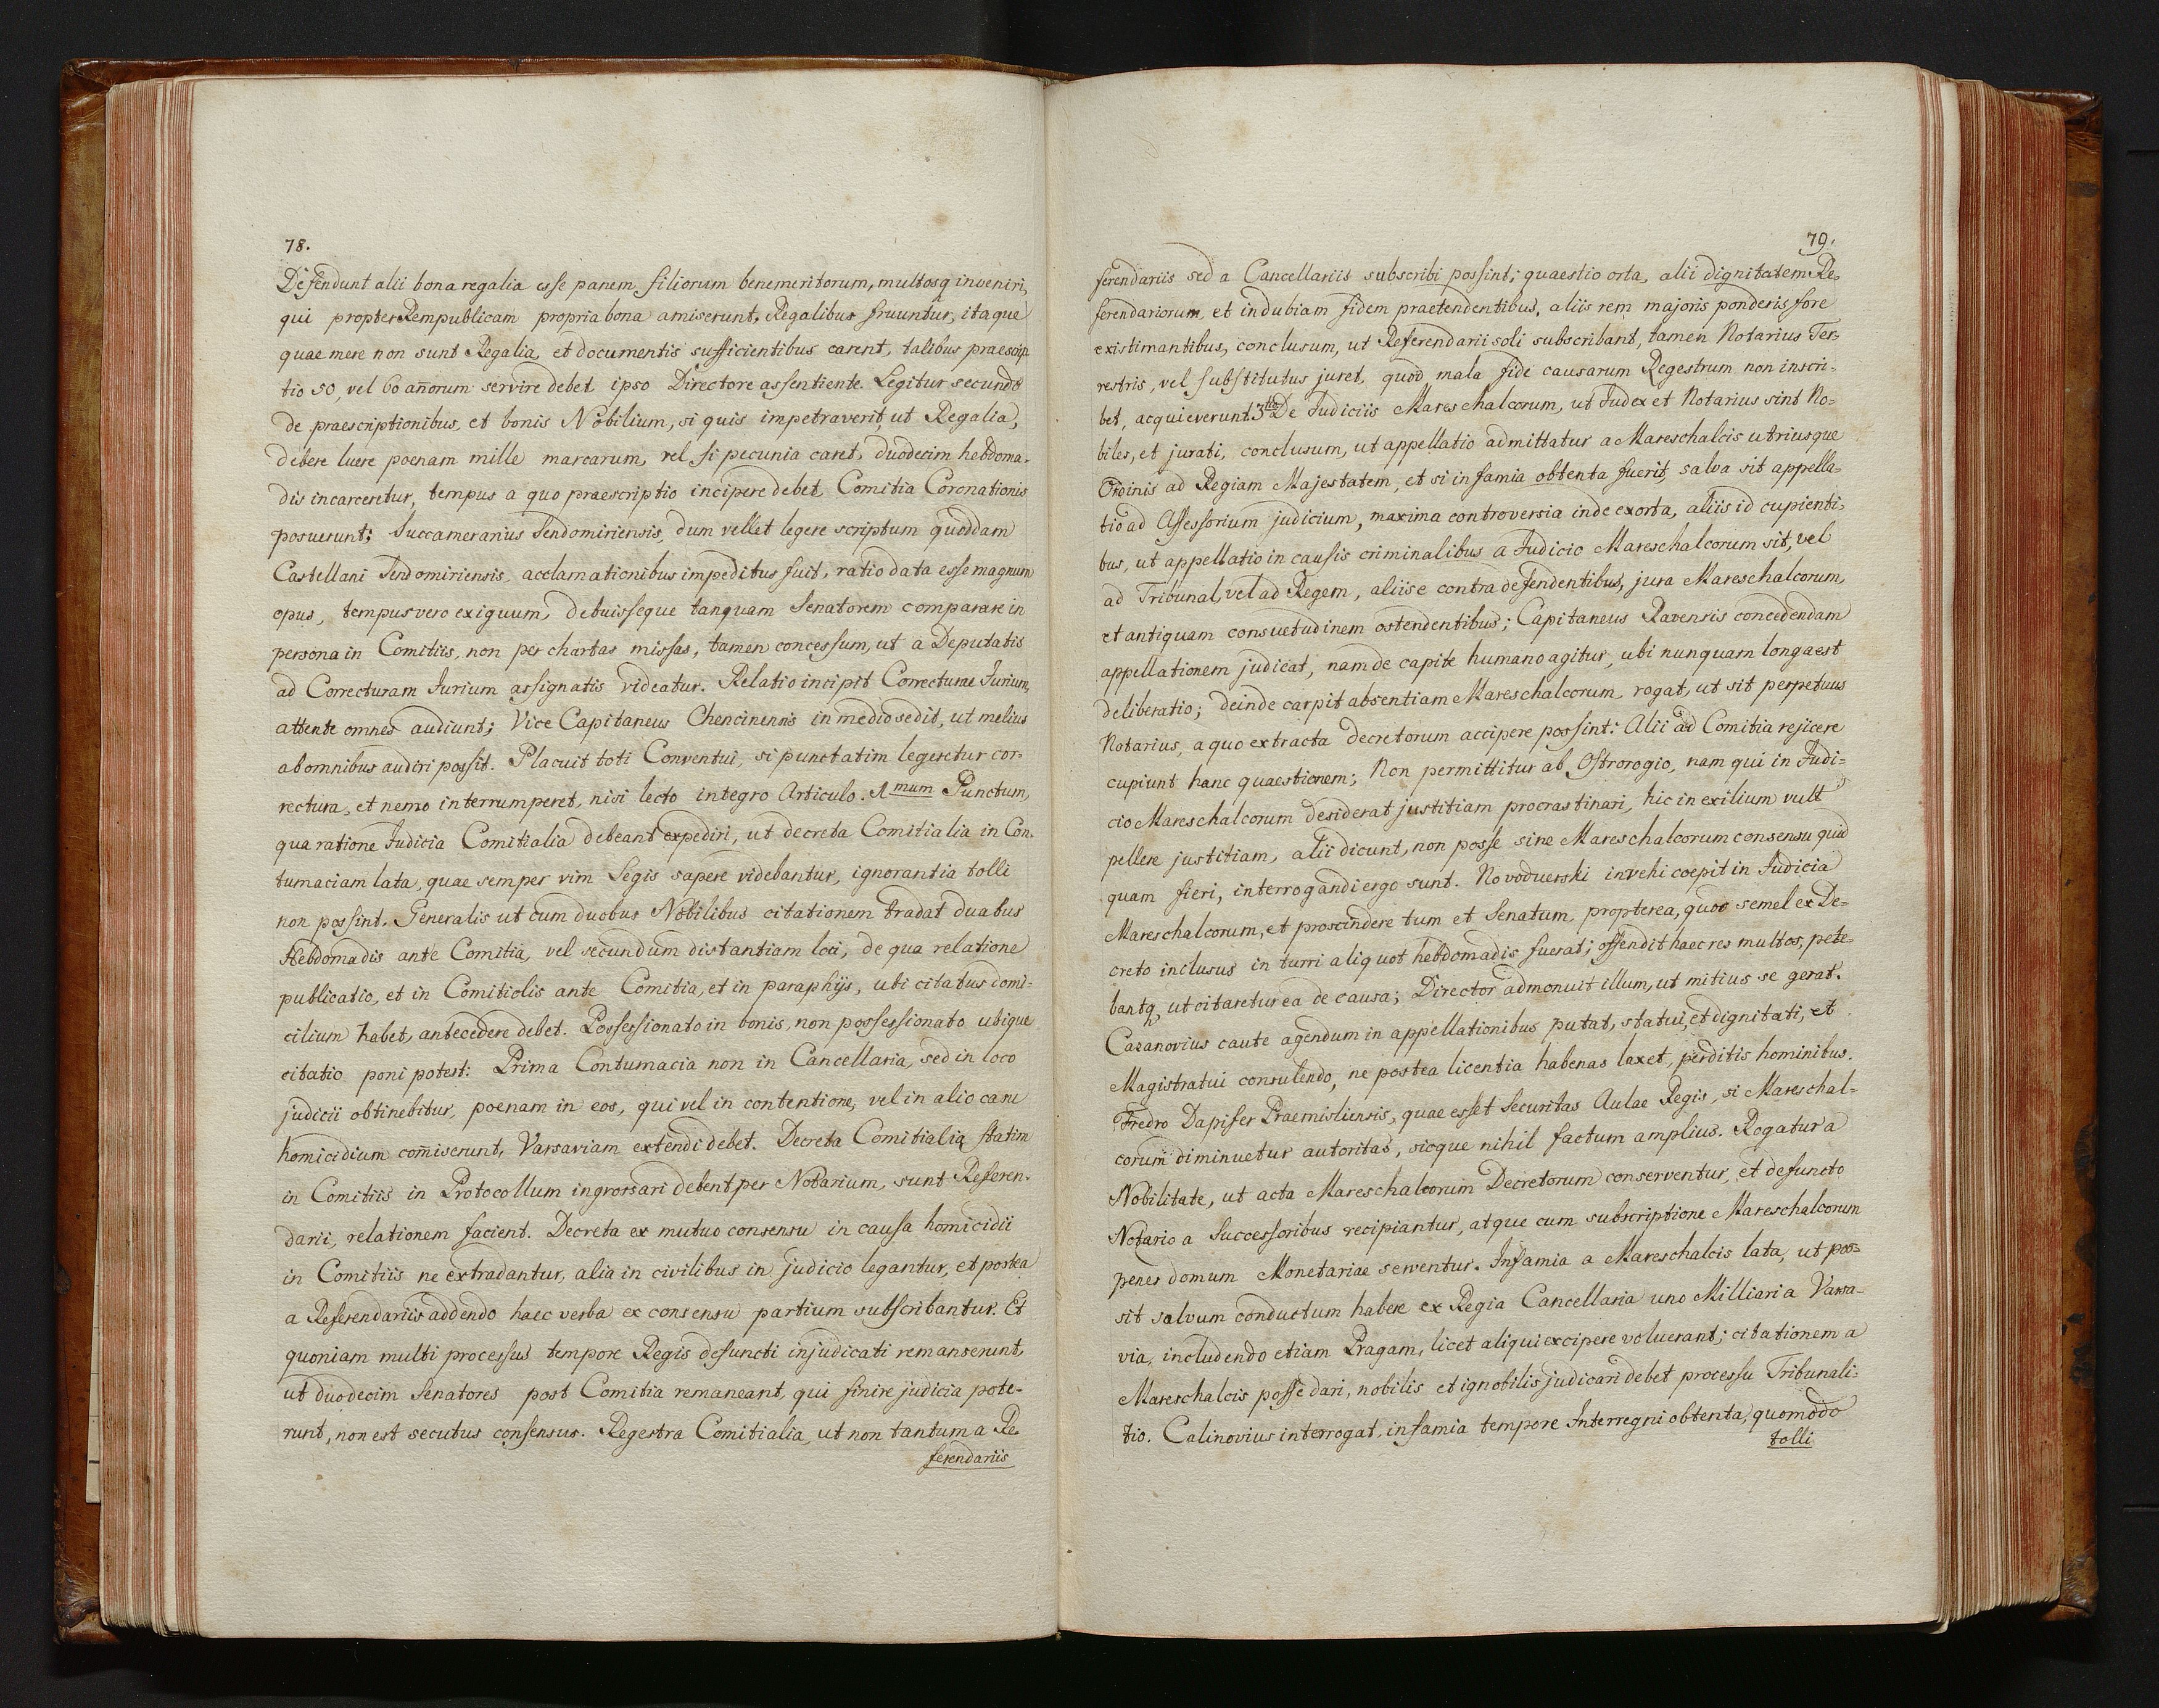 78.
Defendunt alii bona regalia esse panem filiorum benemeritorum, multosq inveniri,
qui propter Rempublicam propria bona amiserunt, Regalibus fruuntur, itaque
quae mere non sunt Regalia, et documentis sufficientibus carent, talibus praescrip
tio 50, vel 60 añorum servire debet ipso Directore assentiente. Legitur secundo
de praescriptionibus, et bonis Nobilium, si quis impetraverit, ut Regalia,
debere luere poenam mille marcarum, vel si pecunia caret, duodecim hebdoma-
dis incarceretur, tempus a quo praescriptio incipere debet, Comitia Coronationis
posuerunt; Succamerarius Sendomiriensis, dum vellet legere scriptum quoddam
Castellani Sendomiriensis, acclamationibus impeditus fuit, ratio data esse magnum
opus, tempus vero exiguum, debuisseque tanquam Senatorem comparare in
persona in Comitiis, non per chartas missas, tamen concessum, ut a Deputatis
ad Correcturam Iurium assignatis videatur. Relatio incipit Correcturae Iurium,
attente omnes audiunt; Vice Capitaneus Chencinensis in medio sedit, ut melius
ab omnibus audiri possit. Placuit toti Conventui, si punctatim legeretur cor-
rectura, et nemo interrumperet, nisi lecto integro Articulo. 1mum Punctum,
qua ratione Iudicia Comitialia debeant expediri, ut decreta Comitialia in Con-
tumaciam lata, quae semper vim Legis sapere videbantur, ignorantia tolli
non possint. Generalis ut cum duobus Nobilibus citationem tradat duabus
Hebdomadis ante Comitia, vel secundum distantiam loci, de qua relatione
publicatio, et in Comitiolis ante Comitia, et in paraphijs, ubi citatus domi-
cilium habet, antecedere debet. Possessionato in bonis, non possessionato ubique
citatio poni potest: Prima Contumacia non in Cancellaria, sed in loco
judicii obtinebitur, poenam in eos, qui vel in contentione, vel in alio casu
homicidium com̄iserunt, Varsaviam extendi debet. Decreta Comitialia statim
in Comitiis in Protocollum ingrossari debent per Notarium, sunt Referen-
darii, relationem facient. Decreta ex mutuo consensu in causa homicidii
in Comitiis ne extradantur, alia in civilibus in judicio legantur, et postea
a Referendariis addendo haec verba ex consensu partium subscribantur. Et
quoniam multi processus tempore Regis defuncti injudicati remanserunt,
ut duodecim Senatores post Comitia remaneant, qui finire judicia pote-
runt, non est secutus consensus. Regestra Comitialia, ut non tantum a Re-
ferendariis
79.
ferendariis sed a Cancellariis subscribi possint; quaestio orta, alii dignitatem Re-
ferendariorum, et indubiam fidem praetendentibus, aliis rem majoris ponderis fore
existimantibus, conclusum, ut Referendarii soli subscribant, tamen Notarius Ter-
restris, vel substitutus juret, quod mala fide causarum Regestrum non inscri-
bet, acquieverunt. 3tio De Iudiciis Mareschalcorum, ut Iudex et Notarius sint No-
biles, et jurati, conclusum, ut appellatio admittatur a Mareschalcis utriusque
Ordinis ad Regiam Majestatem, et si infamia obtenta fuerit, salva sit appella-
tio ad Assessorium judicium, maxima controversia inde exorta, aliis id cupienti-
bus, ut appellatio in causis criminalibus a Iudicio Mareschalcorum sit, vel
ad Tribunal, vel ad Regem, aliis e contra defendentibus, jura Mareschalcorum,
et antiquam consuetudinem ostendentibus; Capitaneus Ravensis concedendam
appellationem judicat, nam de capite humano agitur, ubi nunquam longa est
deliberatio; deinde carpit absentiam Mareschalcorum, rogat, ut sit perpetuus
Notarius, a quo extracta decretorum accipere possint: Alii ad Comitia rejicere
cupiunt hanc quaestionem; Non permittitur ab Ostrorogio, nam qui in Iudi-
cio Mareschalcorum desiderat justitiam procrastinari, hic in exilium vult
pellere justitiam, alii dicunt, non posse sine Mareschalcorum consensu quid
quam fieri, interrogandi ergo sunt. Novoduerski invehi coepit in Iudicia
Mareschalcorum, et proscindere tum et Senatum, propterea, quod semel ex De-
creto inclusus in turri aliquot hebdomadis fuerat; offendit haec res multos, pete-
bantq, ut citaretur ea de causa; Director admonuit illum, ut mitius se gerat.
Cazanovius caute agendum in appellationibus putat, statui, et dignitati, et
Magistratui consulendo, ne postea licentia habenas laxet, perditis hominibus.
Fredro Dapifer Praemisliensis, quae esset Securitas Aulae Regis, si Mareschal-
corum diminuetur autoritas, sicque nihil factum amplius. Rogatur a
Nobilitate, ut acta Mareschalcorum Decretorum conserventur, et defuncto
Notario a Successoribus recipiantur, atque cum subscriptione Mareschalcorum
penes domum Monetariae serventur. Infamia a Mareschalcis lata, ut pos-
sit salvum conductum habere ex Regia Cancellaria uno Milliari a Varsa-
via, includendo etiam Pragam, licet aliqui excipere voluerant; citationem a
Mareschalcis posse dari, nobilis et ignobilis judicari debet processu Tribunali-
tio. Calinovius interrogat, infamia tempore Interregni obtenta, quomodo
tolli